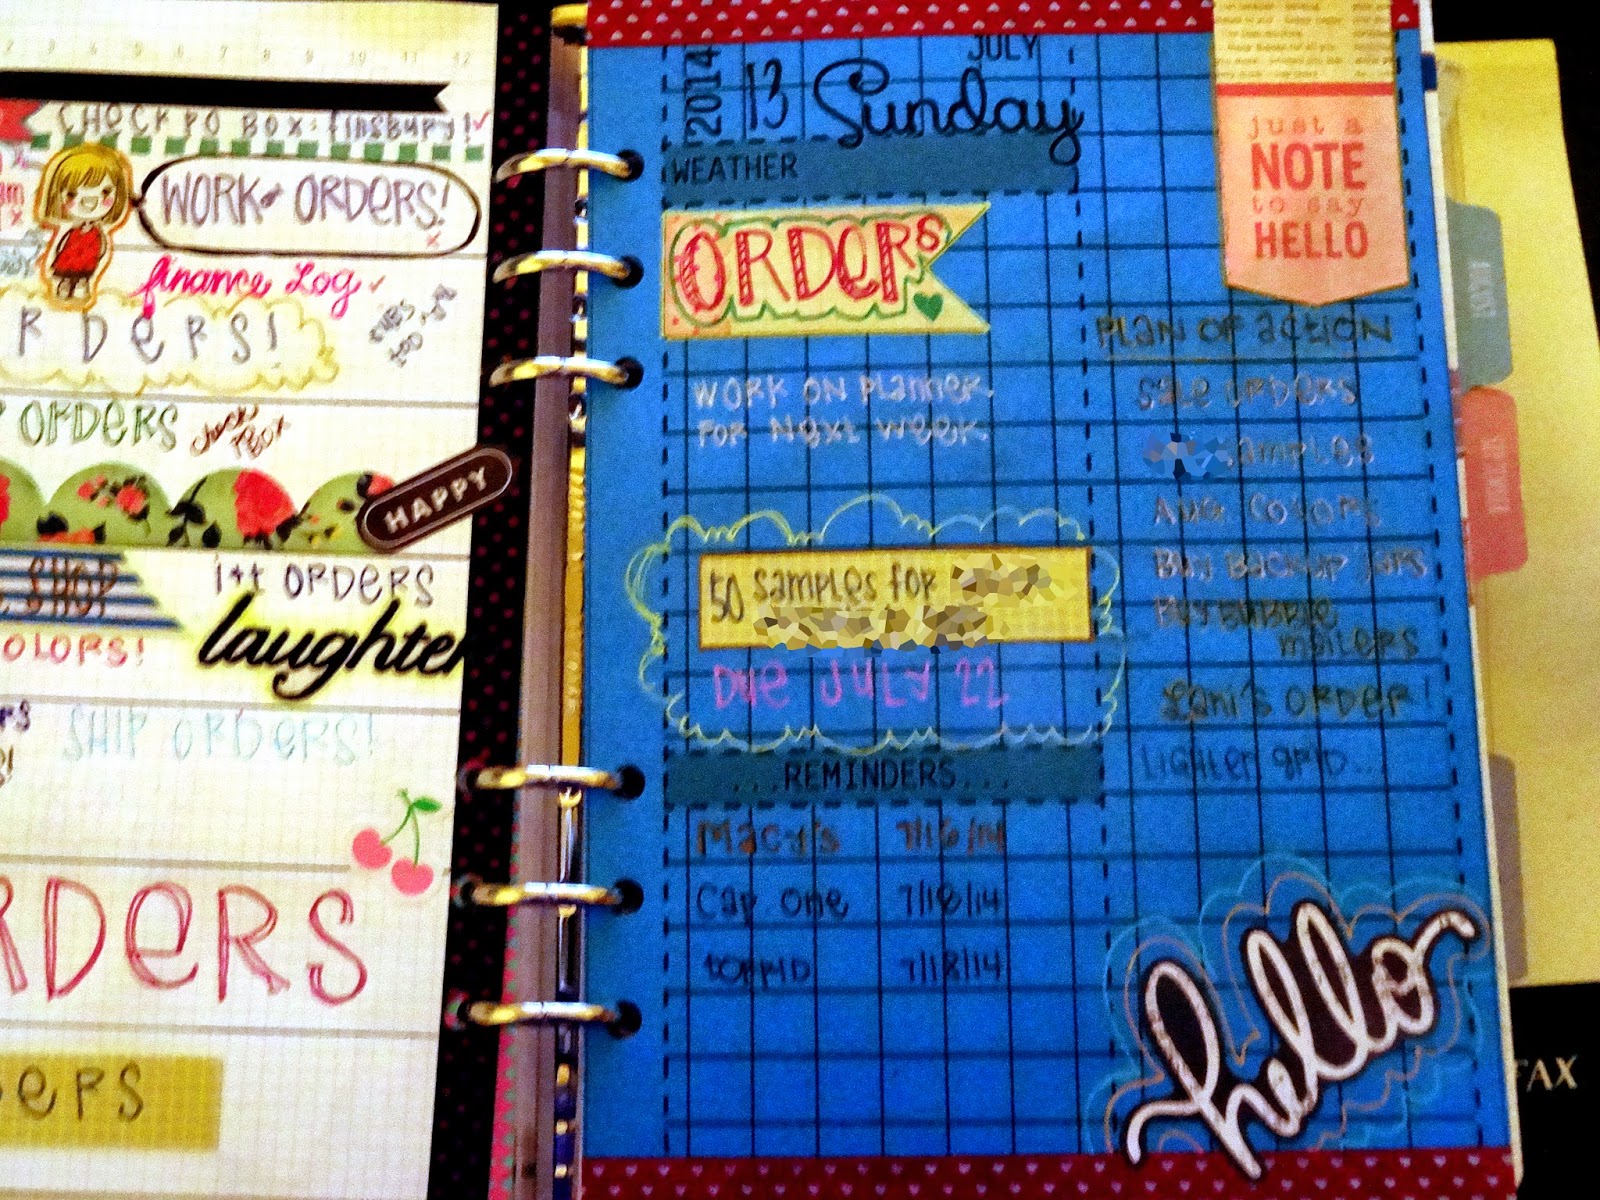 2 3 4 5 6 7 8 9 10 11 12
CHECK PO BOX: finsbury!
WORK ORDERS!
finance Log
RDERS!
SUBS
ORDERS
check
PO BOX
HAPPY
SHOP
1st ORDERS
laughter
COLORS!
SHIP ORDERS!
RDERS
DERS
JULY
2014 13 Sunday
WEATHER
ORDERS
WORK ON PLANNER
FOR NEXT WEEK
50 samples for
Due JULY 22
...REMINDERS...
Macy's 7/16/14
Cap One 7/18/14
TOPPID 7/18/14
just a
NOTE
to say
HELLO
PLAN OF ACTION
Sale ORDERS
samples
AUG COLORS
BUY BACKUP JARS
BUY BUBBLE
mailers
Lani's ORDER!
LIGHTER GRID...
hello
FAX